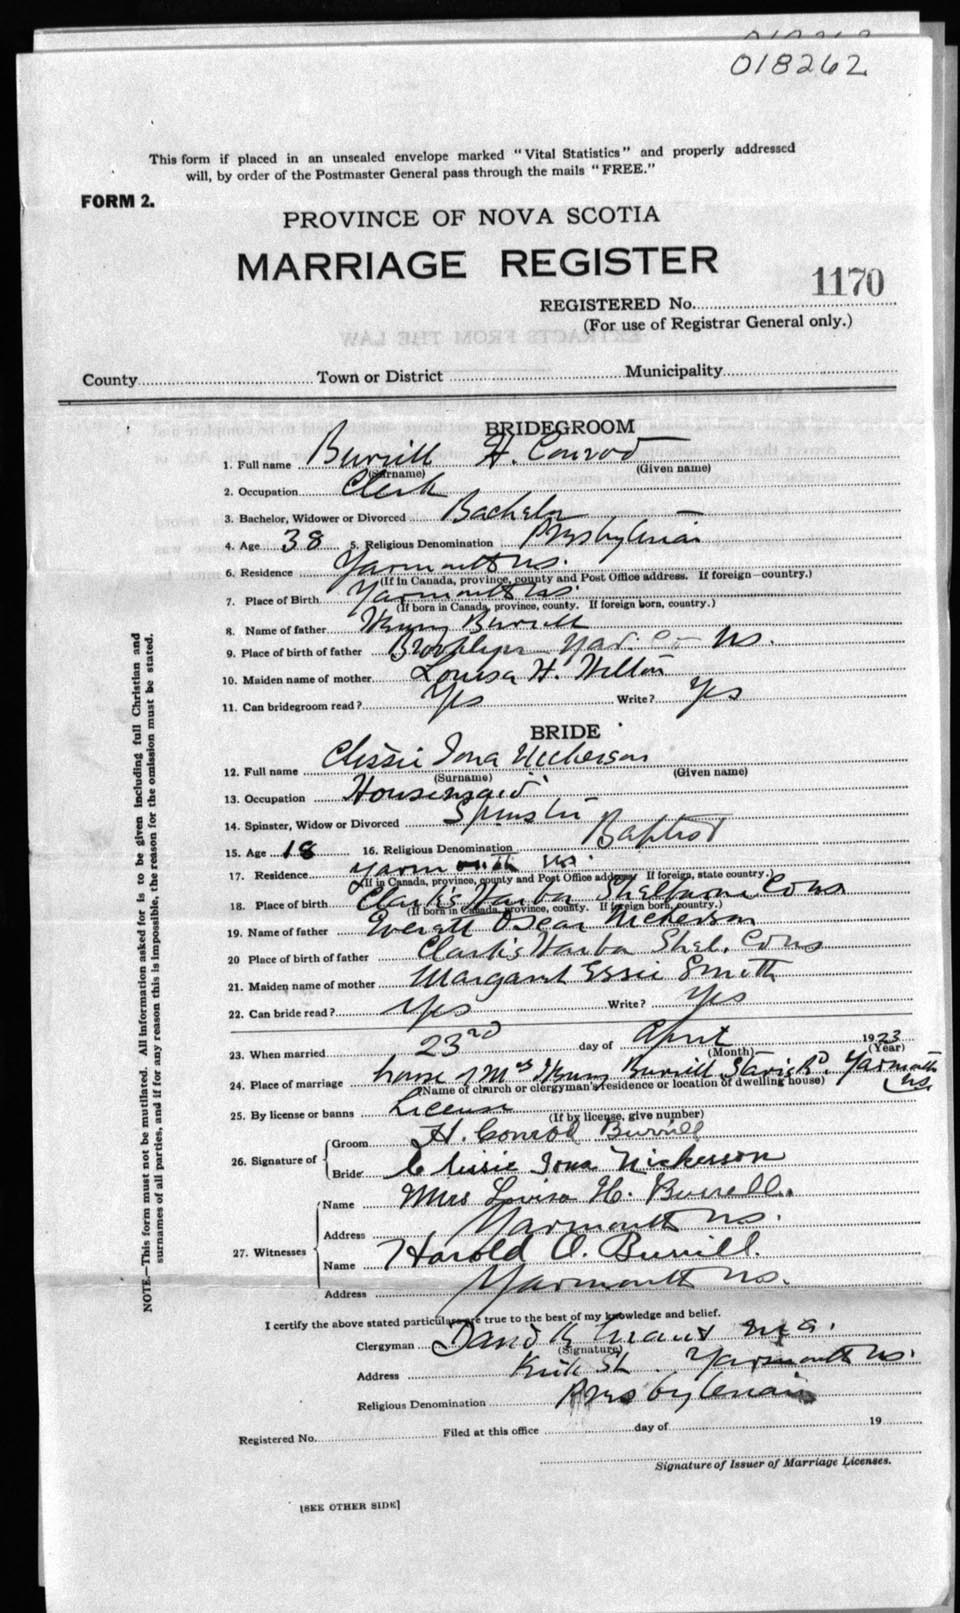 018262
This form if placed in an unsealed envelope marked "Vital Statistics" and properly addressed
will, by order of the Postmaster General pass through the mails "FREE."
FORM 2.
PROVINCE OF NOVA SCOTIA
MARRIAGE REGISTER
1170
REGISTERED No.
(For use of Registrar General only.)
EXTRACTS FROM THE LAW
County Town or District Municipality
BRIDEGROOM
1. Full name Burrill H. Conrod
(Surname) (Given name)
2. Occupation Clerk
3. Bachelor, Widower or Divorced Bachelor
4. Age 38 5. Religious Denomination Presbyterian
6. Residence Yarmouth N.S.
(If in Canada, province, county and Post Office address. If foreign—country.)
7. Place of Birth Yarmouth N.S.
(If born in Canada, province, county. If foreign born, country.)
8. Name of father Burrill
9. Place of birth of father Brooklyn Yar. Co N.S.
10. Maiden name of mother Louisa H. Hilton
11. Can bridegroom read? Yes Write? Yes
BRIDE
12. Full name Clissie Iona Nickerson
(Surname) (Given name)
13. Occupation Housemaid
14. Spinster, Widow or Divorced Spinster
15. Age 18 16. Religious Denomination Baptist
17. Residence Yarmouth N.S.
(If in Canada, province, county and Post Office address. If foreign, state country.)
18. Place of birth Clark's Harbor Shelburne Co N.S.
(If born in Canada, province, county. If foreign born, country.)
19. Name of father Everett Oscar Nickerson
20 Place of birth of father Clark's Harbor Shel. Co N.S.
21. Maiden name of mother Margaret Essie Smith
22. Can bride read? Yes Write? Yes
23. When married 23rd day of April 1923
(Month) (Year)
24. Place of marriage house of Mrs Burrill Yarmouth N.S.
(Name of church or clergyman's residence or location of dwelling house)
25. By license or banns License
(If by license, give number)
26. Signature of Groom H. Conrod Burrill
Bride Clissie Iona Nickerson
27. Witnesses Name Mrs Louisa H. Burrell.
Address Yarmouth N.S.
Name Harold O. Burrill.
Address Yarmouth N.S.
I certify the above stated particulars are true to the best of my knowledge and belief.
Clergyman David K Grant M.A.
(Signature)
Address Kirk St. Yarmouth N.S.
Religious Denomination Presbyterian
Registered No. Filed at this office day of 19
Signature of Issuer of Marriage Licenses.
[SEE OTHER SIDE]
NOTE.—This form must not be mutilated. All information asked for is to be given including full Christian and
surnames of all parties, and if for any reason this is impossible, the reason for the omission must be stated.